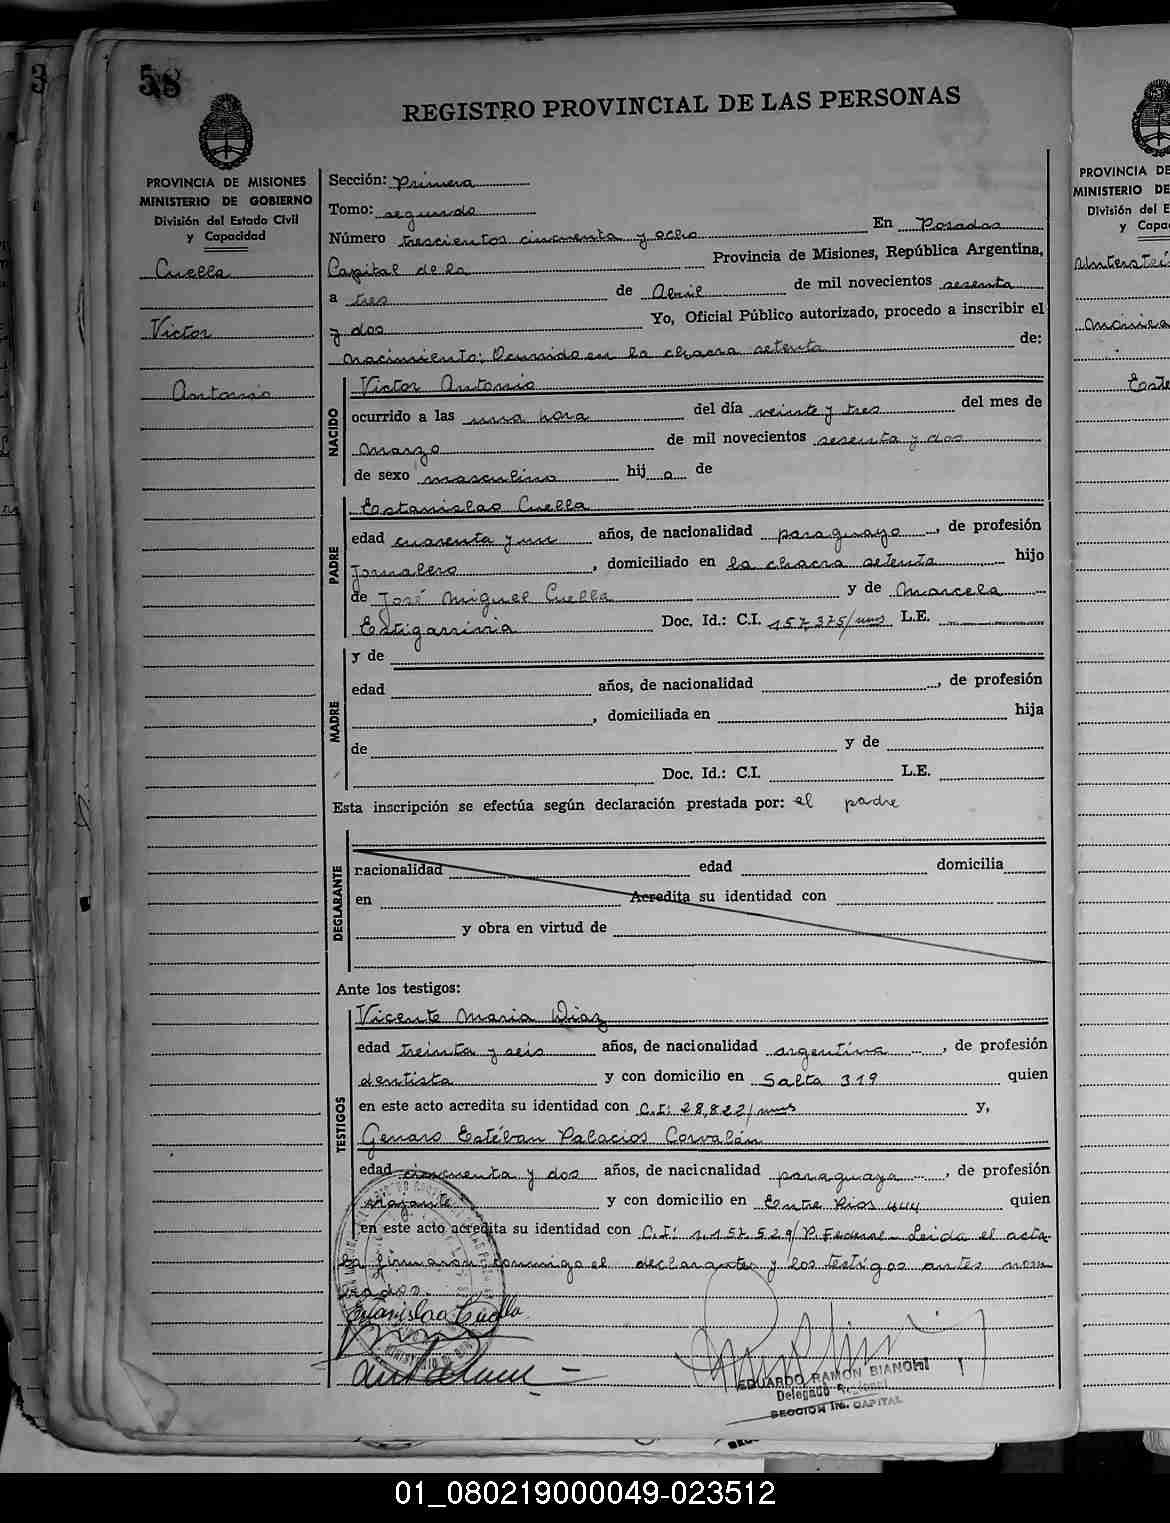 58
REGISTRO PROVINCIAL DE LAS PERSONAS
PROVINCIA DE MISIONES
MINISTERIO DE GOBIERNO
División del Estado Civil
y Capacidad
Cuella
Victor
Antonio
Sección: Primera
Tomo: segundo
Número trescientos cincuenta y ocho En Posadas
Capital de la Provincia de Misiones, República Argentina,
a tres de Abril de mil novecientos sesenta
y dos Yo, Oficial Público autorizado, procedo a inscribir el
nacimiento: Ocurrido en la chacra setenta de:
NACIDO
Victor Antonio
ocurrido a las una hora del día veinte y tres del mes de
marzo de mil novecientos sesenta y dos
de sexo masculino hij o de
PADRE
Estanislao Cuella
edad cuarenta y un años, de nacionalidad paraguayo, de profesión
Jornalero, domiciliado en la chacra setenta hijo
de José Miguel Cuella y de Marcela
Estigarrivia Doc. Id.: C.I. 157,375/mnes L.E.
MADRE
y de
edad años, de nacionalidad , de profesión
, domiciliada en hija
de y de
Doc. Id.: C.I. L.E.
Esta inscripción se efectúa según declaración prestada por: el padre
DECLARANTE
nacionalidad edad domicilia
en Acredita su identidad con
y obra en virtud de
Ante los testigos:
TESTIGOS
Vicente Maria Diaz
edad treinta y seis años, de nacionalidad argentina, de profesión
dentista y con domicilio en Salta 319 quien
en este acto acredita su identidad con C.I: 28,822/mnes y,
Genaro Estéban Palacios Corvalán
edad cincuenta y dos años, de nacionalidad paraguaya, de profesión
viajante y con domicilio en Entre Rios 444 quien
en este acto acredita su identidad con C.I: 1.157.529/P. Federal - Leida el acta
la firmaron conmigo el declarantes y los testigos antes nom
brados.
Estanislao Cuella
EDUARDO RAMON BIANCHI
Delegado
SECCION 1ra. CAPITAL
3
PROVINCIA DE
MINISTERIO DE
División del E
y Capa
01_080219000049-023512